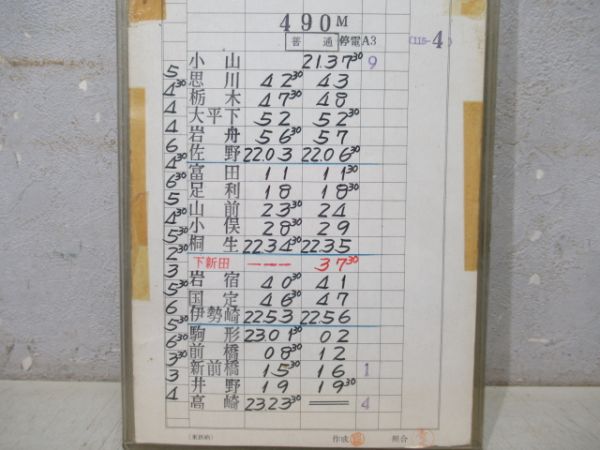 490M
普通 停電A3 (115-4)
小山 2137³⁰ 9
5
思川 42³⁰ 43
4³⁰
栃木 47³⁰ 48
4
大平下 52 52³⁰
4
岩舟 56³⁰ 57
6
佐野 22.03 22.06³⁰
4³⁰
富田 11 11³⁰
6³⁰
足利 18 18³⁰
5
山前 23³⁰ 24
4³⁰
小俣 28³⁰ 29
5³⁰
桐生 2234³⁰ 2235
2³⁰
下新田 --- 37³⁰
3
岩宿 40³⁰ 41
5³⁰
国定 46³⁰ 47
6
伊勢崎 2253 2256
5³⁰
駒形 23.01³⁰ 02
6³⁰
前橋 08³⁰ 12
3³⁰
新前橋 15³⁰ 16 1
3
井野 19 19³⁰
4
高崎 23.23³⁰ == 4
作成 照合